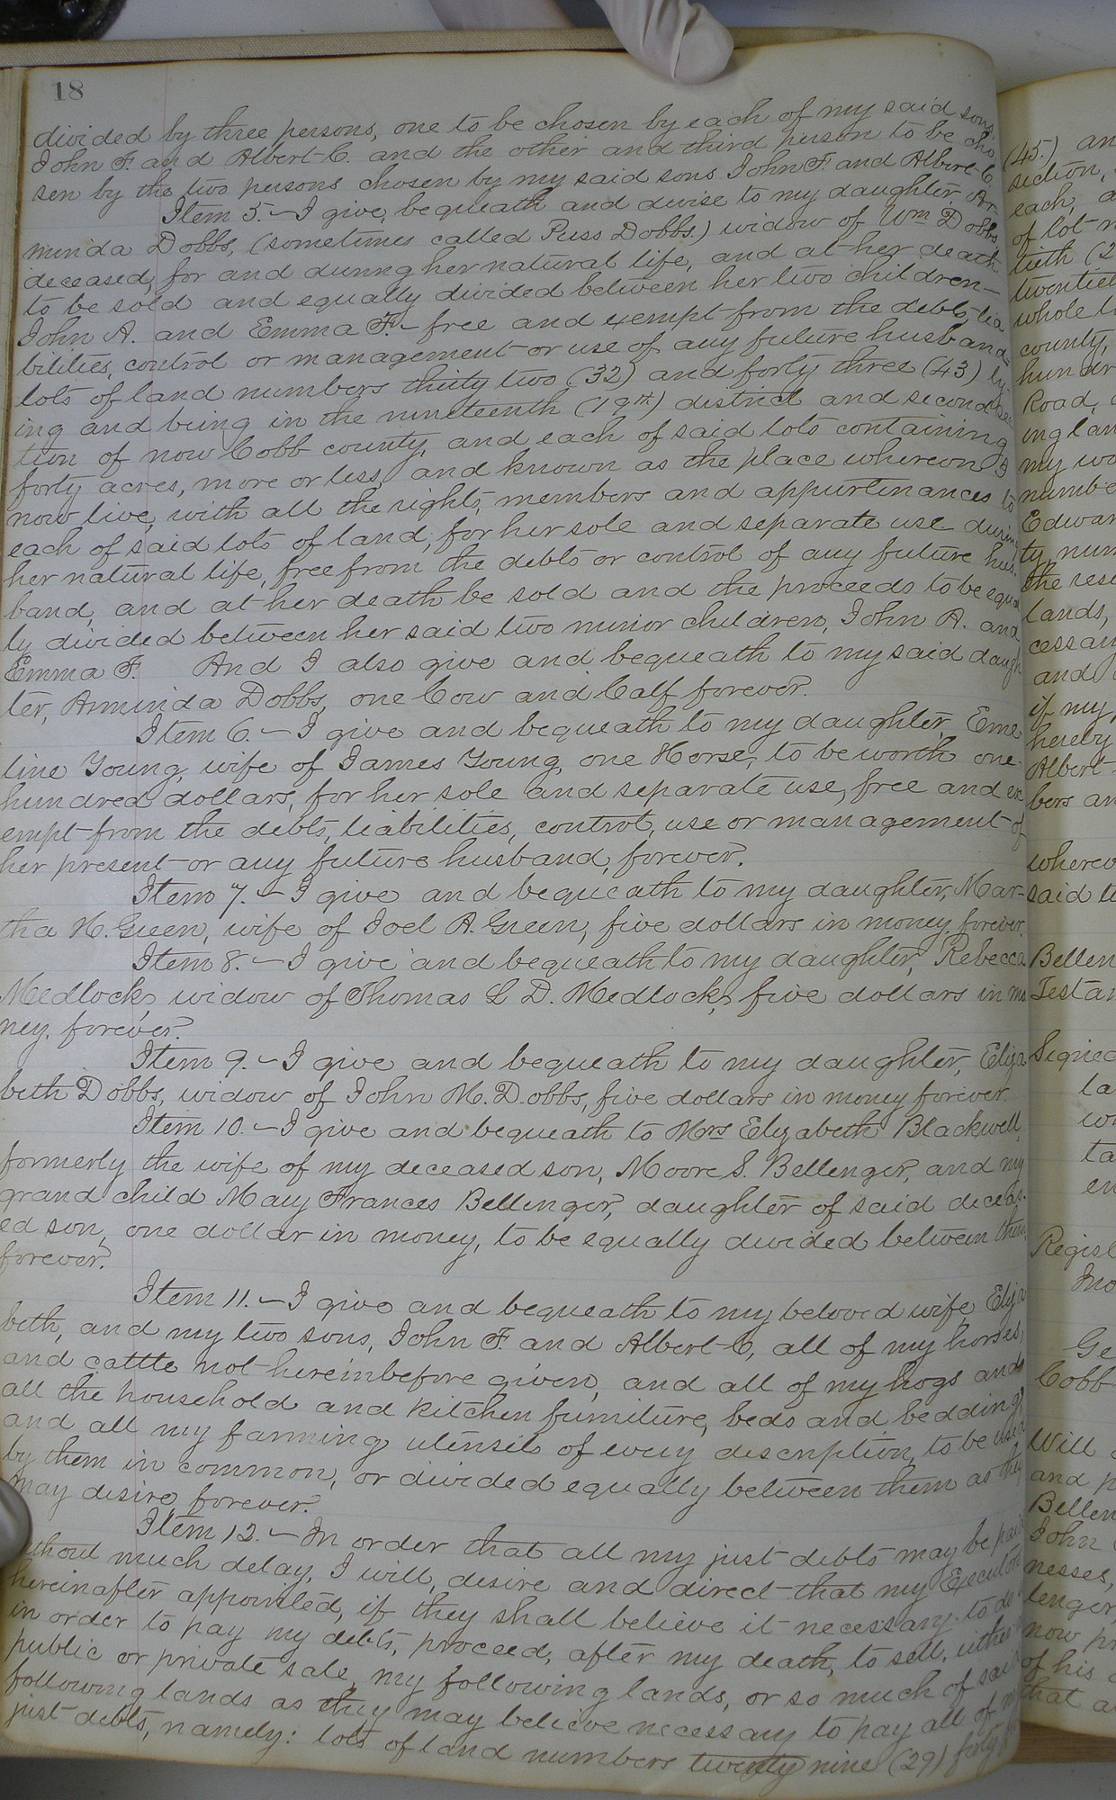 18
divided by three persons, one to be chosen by each of my said sons
John F. and Albert C. and the other and third person to be cho
sen by the two persons chosen by my said sons John F. and Albert C
Item 5.- I give, bequeath and devise to my daughter, Ar
minda Dobbs, (sometimes called Puss Dobbs.) widow of Wm Dobbs
deceased, for and during her natural life, and at her death
to be sold and equally divided between her two children-
John A. and Emma F.- free and exempt from the debts, lia
bilities, control or management or use of any future husband
lots of land numbers thirty two (32) and forty three (43) ly
ing and being in the nineteenth (19th) district and second sec
tion of now Cobb county, and each of said lots containing
forty acres, more or less, and known as the place whereon
now live, with all the rights, members and appurtinances to
each of said lots of land, for her sole and separate use during
her natural life, free from the debts or control of any future hus
band, and at her death be sold and the proceeds to be equal
ly divided between her said two minor children, John A. and
Emma F. And I also give and bequeath to my said daugh
ter, Arminda Dobbs, one Cow and Calf forever.
Item 6.- I give and bequeath to my daughter, Eme
line Young, wife of James Young, one Horse, to be worth one
hundred dollars, for her sole and separate use, free and ex
empt from the debts, liabilities, control, use or management of
her present or any future husband, forever.
Item 7.- I give and bequeath to my daughter, Mar-
tha H. Green, wife of Joel A. Green, five dollars in money forever.
Item 8.- I give and bequeath to my daughter, Rebecca
Medlock, widow of Thomas L D. Medlock, five dollars in mo
ney, forever.
Item 9.- I give and bequeath to my daughter, Eliza
beth Dobbs, widow of John M. Dobbs, five dollars in money forever.
Item 10.- I give and bequeath to Mrs Elizabeth Blackwell,
formerly the wife of my deceased son, Moore S. Bellenger, and my
grand child Mary Frances Bellenger, daughter of said deceas-
ed son, one dollar in money, to be equally divided between them,
forever.
Item 11.- I give and bequeath to my beloved wife, Eliza
beth, and my two sons, John F. and Albert C, all of my horses,
and cattle not hereinbefore given, and all of my hogs and
all the household and kitchen furniture, beds and bedding,
and all my farming utensils of every description, to be used
by them in common, or divided equally between them as they
may desire, forever.
Item 12.- In order that all my just debts may be paid
without much delay, I will, desire and direct that my Executors
hereinafter appointed, if they shall believe it necessary to do
in order to pay my debts, proceed, after my death, to sell, either
public or private sale, my following lands, or so much of said
following lands as they may believe necessary to pay all of my
just debts, namely: lots of land numbers twenty nine (29) forty
(45.) an
section,
each, a
of lot n
tieth (2
twentiet
whole t
county,
hundr
Road,
ing lan
my wo
numbe
Edwar
ty, num
the rese
lands,
cessary
and
if my
hereby
Albert
bers an
wherev
said te
Bellen
Testa
Signed
la
wi
ta
en
Regist
Mo
Ge
Cobb
Will
and p
Bellen
John
nesses,
lenger
now pr
of his
that a